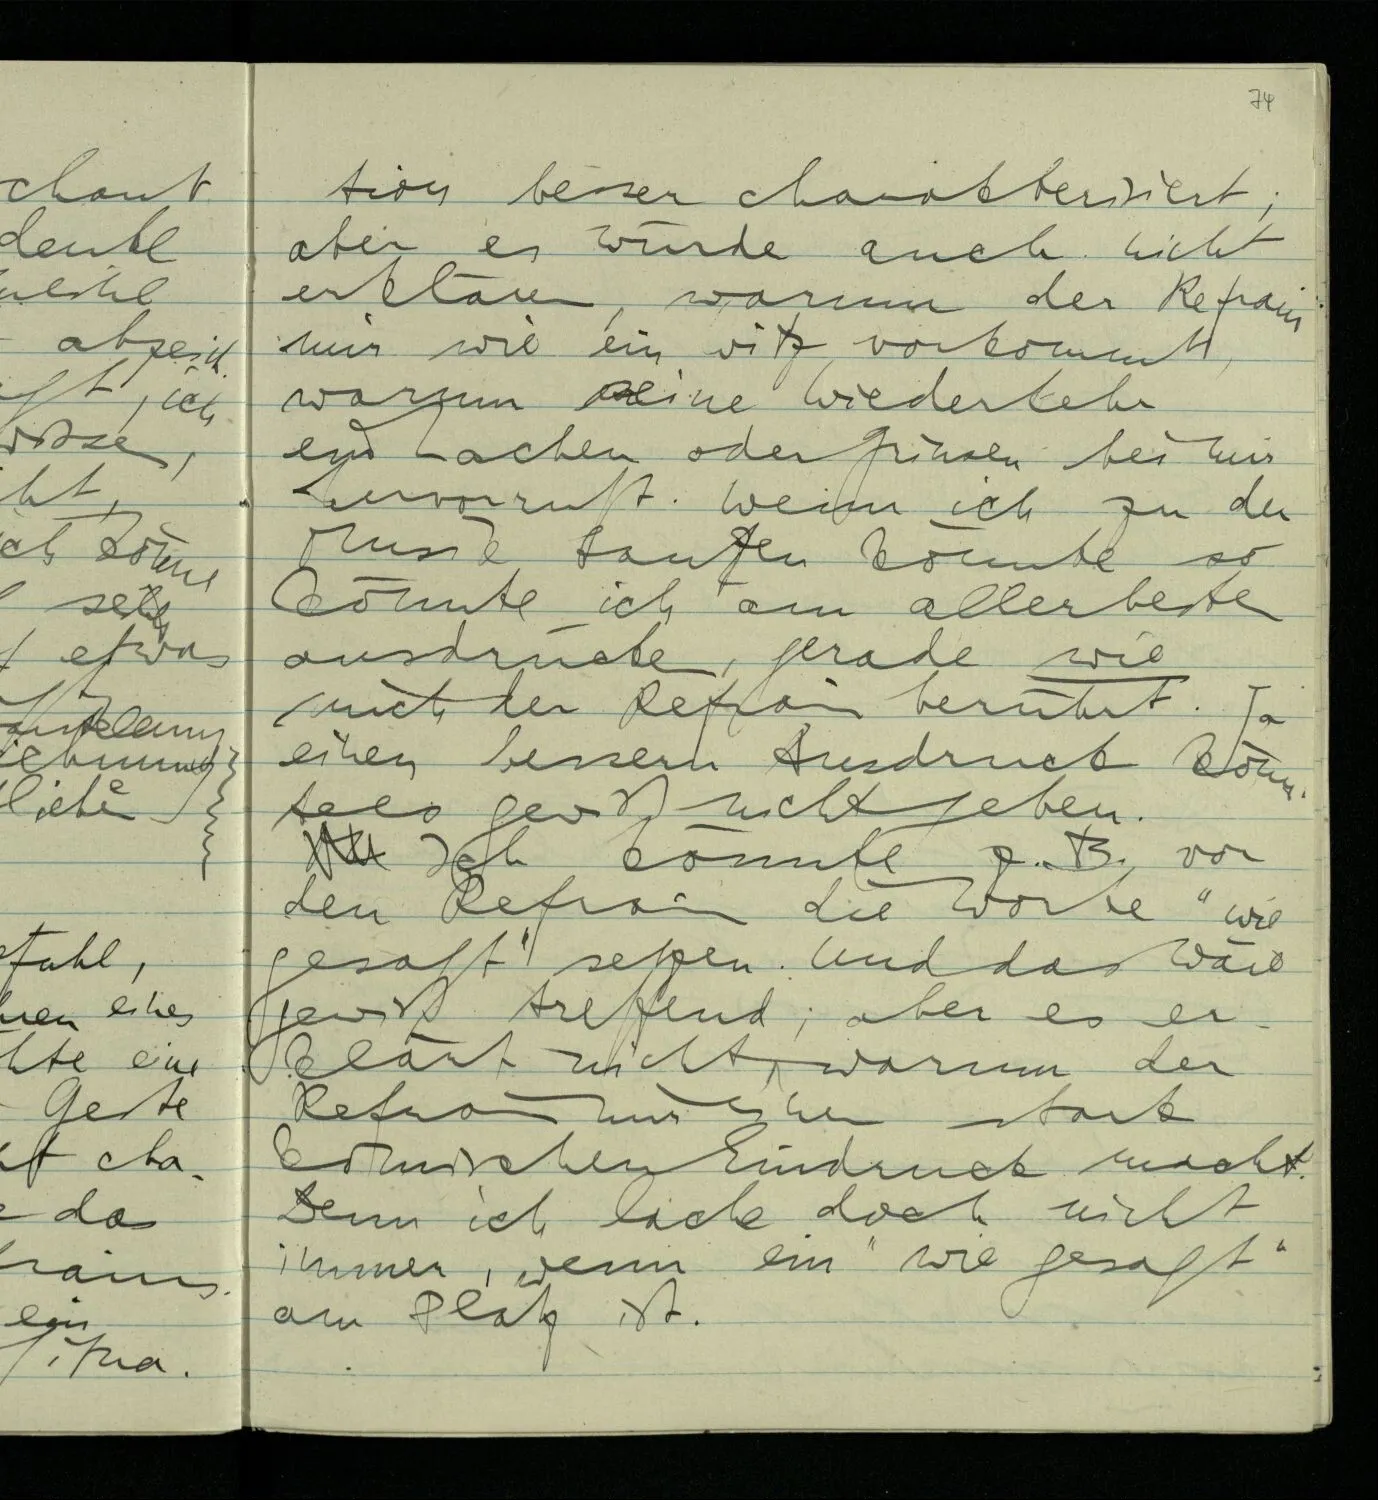 chaut
denke
abzeich.
ich
wisse,
ich könne
etwas
gefühl,
einer
eine
Geste
cha-
das
Refrains.
ein
Situa.
74
tion besser charakterisiert;
aber es würde auch nicht
erklären, warum der Refrain
mir wie ein Witz vorkommt,
warum seine Wiederkehr
ein Lachen oder Grinsen bei mir
hervorruft. Wenn ich zu der
Musik tanzen könnte so
könnte ich am allerbesten
ausdrücken, gerade wie
mich der Refrain berührt. Ja
einen bessern Ausdruck könn-
te es gewiß nicht geben.
Ich könnte z.B. vor
den Refrain die Worte "wie
gesagt" setzen. Und das wäre
gewiß treffend; aber es er-
klärt nicht, warum der
Refrain mir einen stark
komischen Eindruck macht.
Denn ich lache doch nicht
immer, wenn ein "wie gesagt"
am Platz ist.